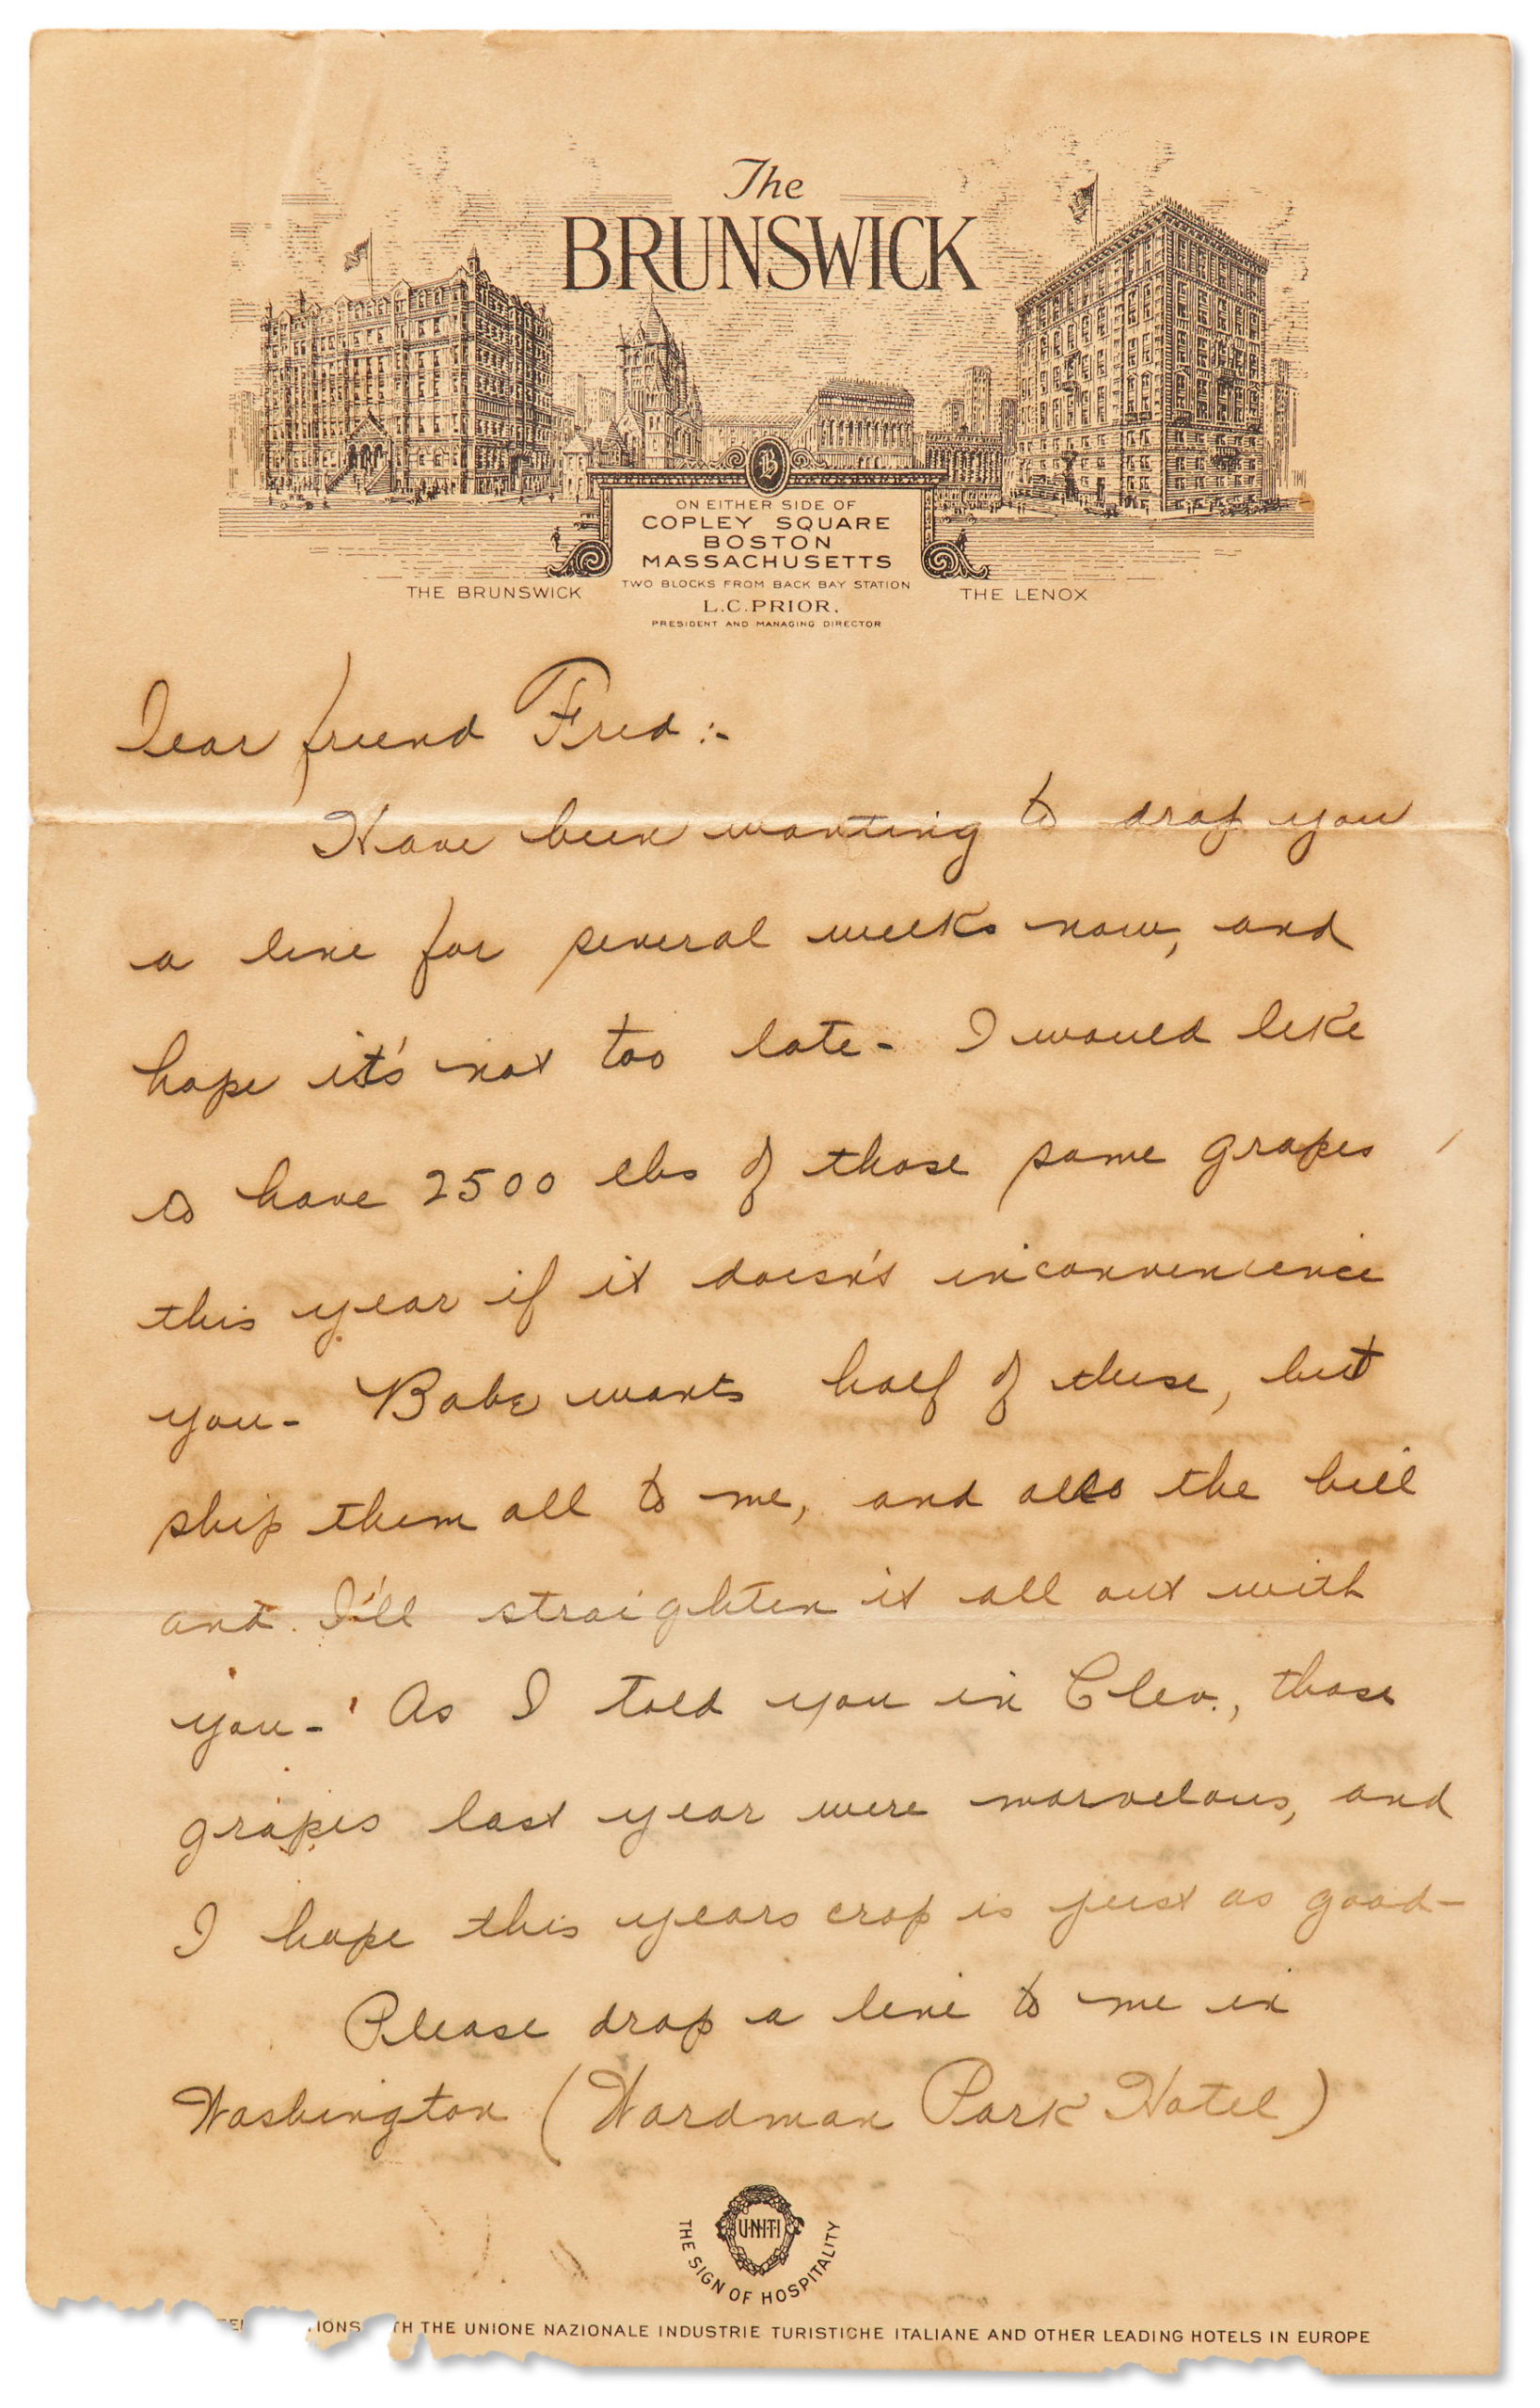 The
BRUNSWICK
B
ON EITHER SIDE OF
COPLEY SQUARE
BOSTON
MASSACHUSETTS
TWO BLOCKS FROM BACK BAY STATION
L.C. PRIOR.
PRESIDENT AND MANAGING DIRECTOR
THE BRUNSWICK
THE LENOX
Dear friend Fred :-
Have been wanting to drop you
a line for several weeks now, and
hope it's not too late - I would like
to have 2500 lbs of those same grapes
this year if it doesn't inconvenience
you - Babe wants half of these, but
ship them all to me, and also the bill
and I'll straighten it all out with
you - As I told you in Clev., those
grapes last year were marvelous, and
I hope this years crop is just as good -
Please drop a line to me in
Washington (Wardman Park Hotel)
UNITI
THE SIGN OF HOSPITALITY
THE UNIONE NAZIONALE INDUSTRIE TURISTICHE ITALIANE AND OTHER LEADING HOTELS IN EUROPE